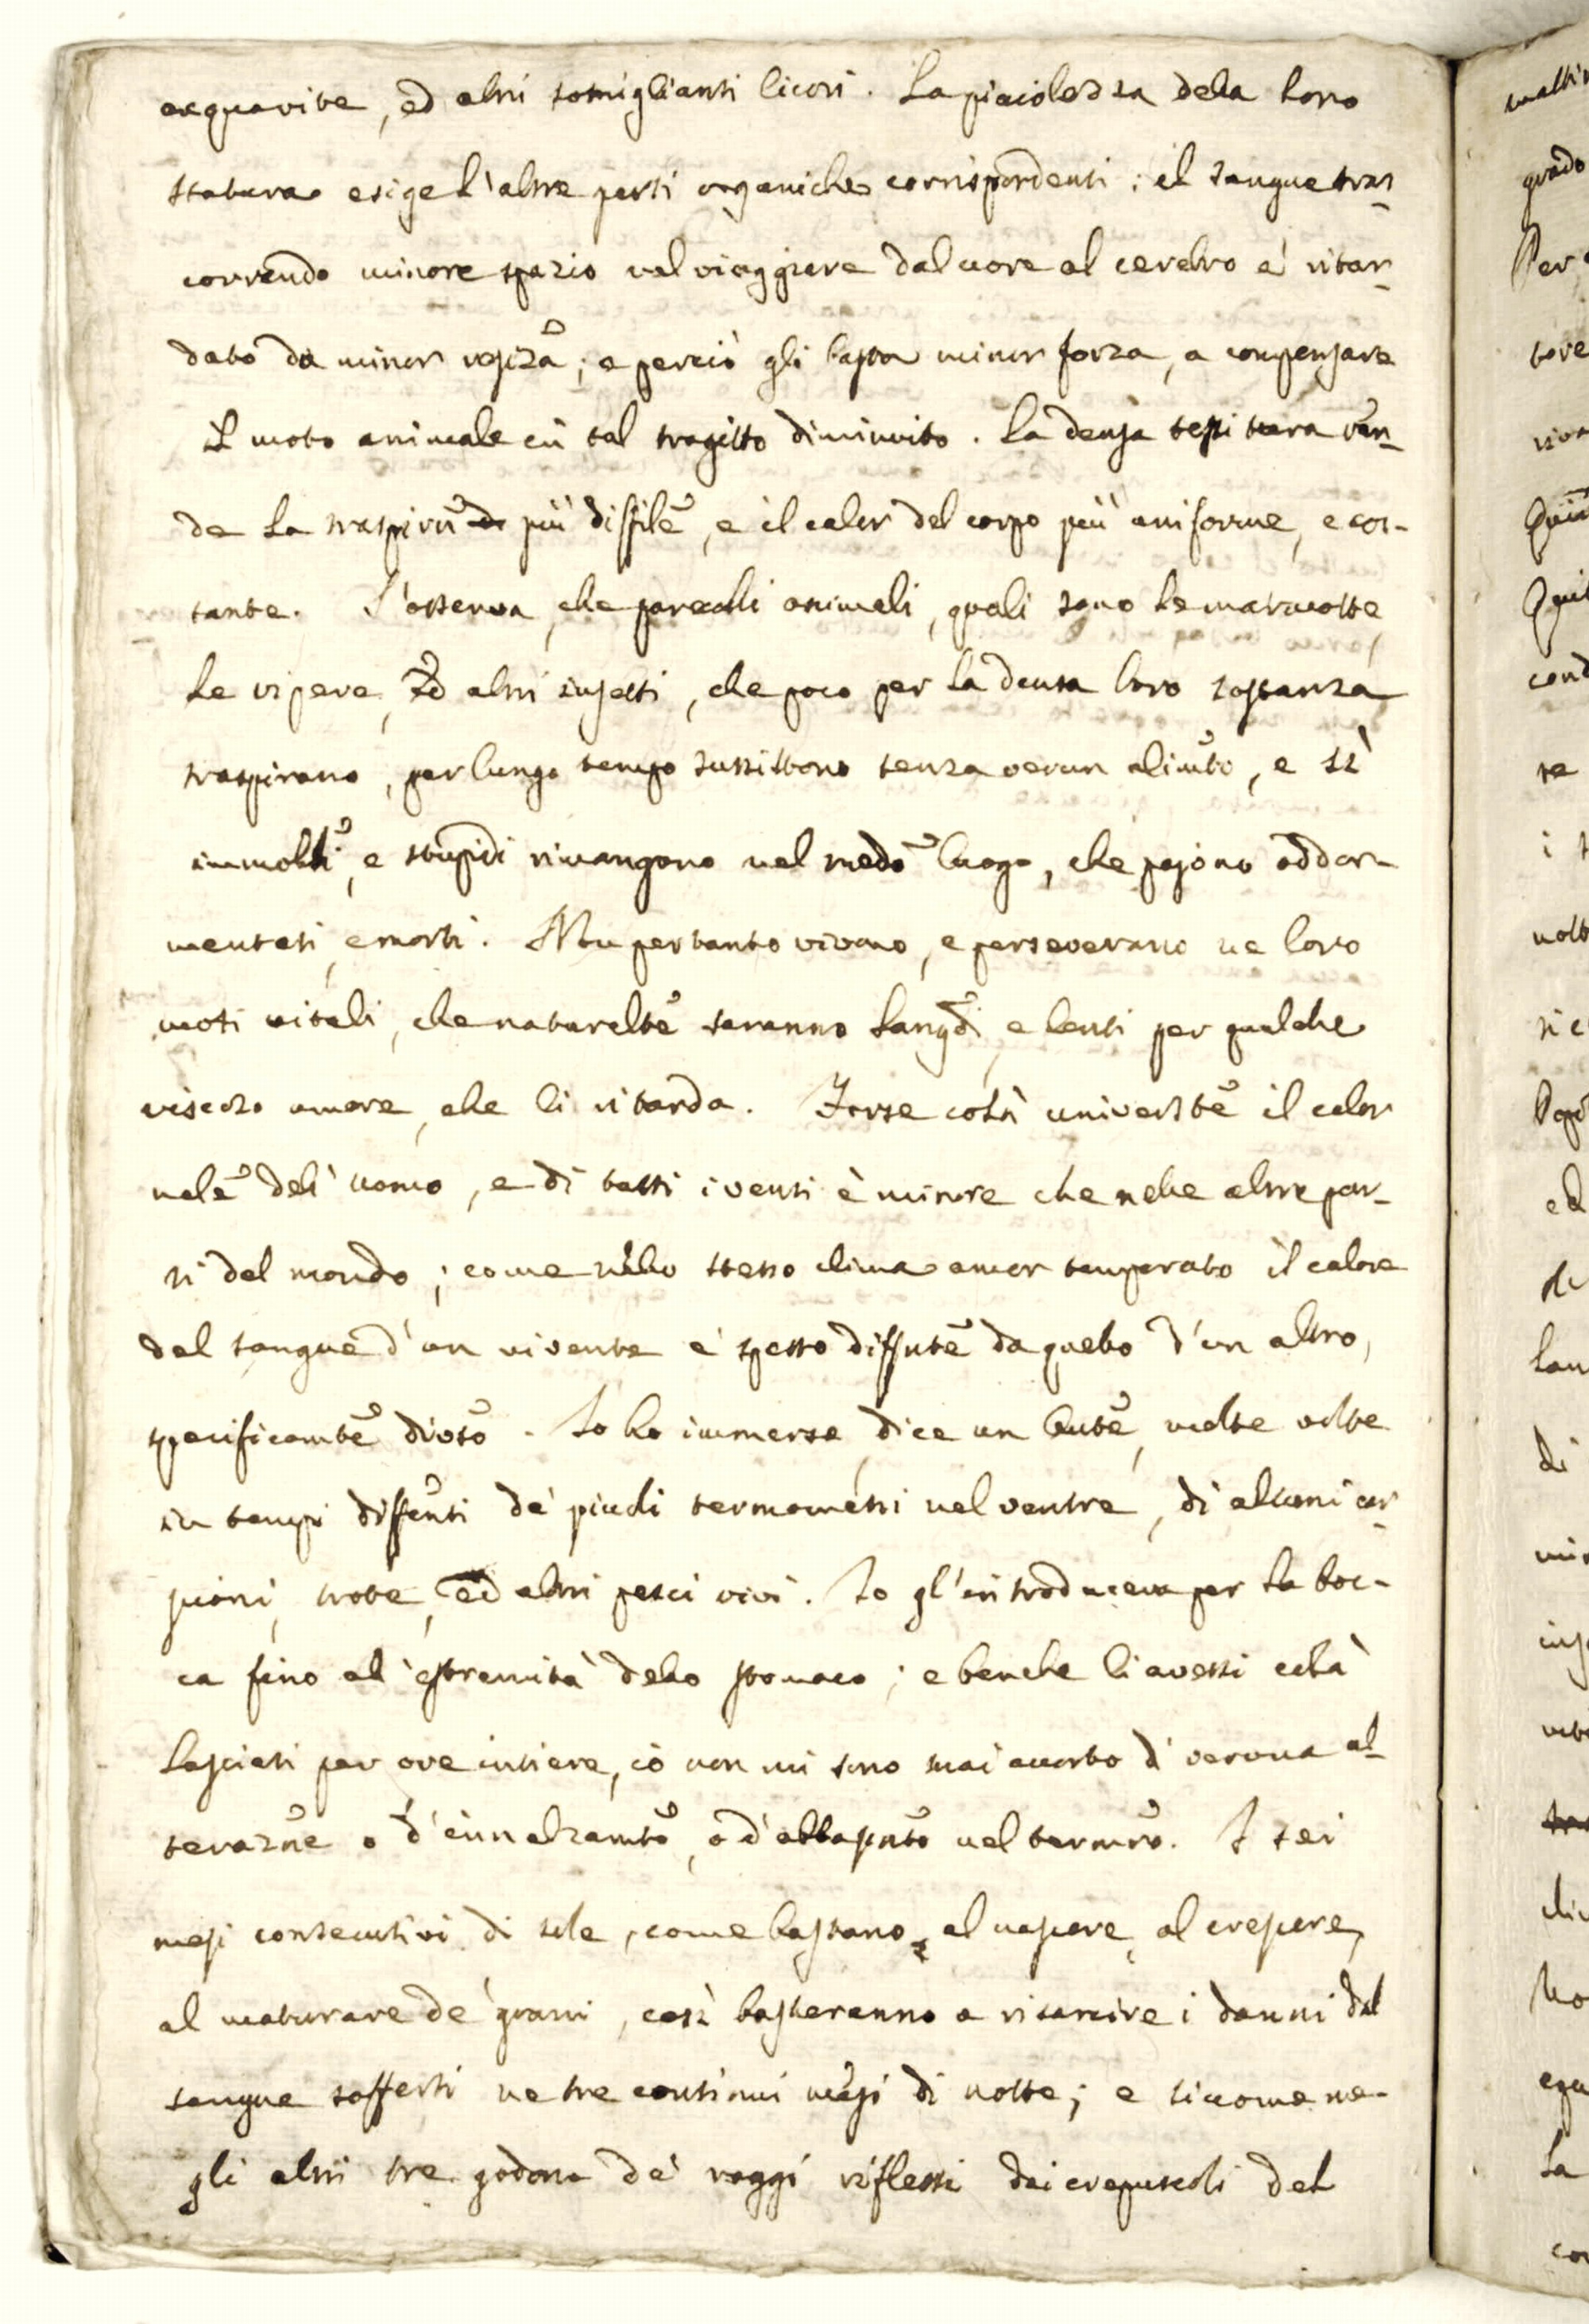 acquavite, ed altri somiglianti licori. La picciolezza della loro
statura esige l'altre parti organiche corrispondenti; il sangue tras-
correndo minore spazio nel viaggiare dal cuore al cerebro è ritar-
dato da minor resisza; e perciò gli basta minor forza, a compensare
il moto animale in tal tragitto diminuito. La densa tessitura ren-
de la traspiraz più diffile, e il calor del corpo più uniforme, e cos-
tante. S'osserva, che parecchi animali, quali sono le marmotte
le vipere, ed altri insetti, che poco per la densa loro sostanza
traspirano, per lungo tempo sussistono senza verun alimto, e sì
immobli, e stupidi rimangono nel medo luogo, che pajono addor-
mentati, e morti. Non pertanto vivono, e perseverano ne loro
moti vitali, che naturalte saranno langdi, e lenti per qualche
viscoso umore, che li ritarda. Forse colà universte il calor
nale dell'uomo, e di tutti i venti è minore che nelle altre par-
ti del mondo; come nello stesso clima ancor temperato il calore
del sangue d'un vivente è spesso diffnte da quello d'un altro,
specificamte divso. Io ho immerse, dice un , molte volte
in tempi diffenti de' piccli termometri nel ventre, di alcuni car-
pioni, trote, ed altri pesci vivi. Io gl'introduceva per la boc-
ca fino all'estremità dello stomaco; e benche li avessi colà
lasciati per ore intiere, io non mi sono mai accorto di veruna al-
terazne o d'innalzamto, o d'abbassmto nel termtro. I sei
mesi consecutivi di sole, come bastano al nascere, al crescere,
al maturare de' grani, così basteranno a risarcire i danni del
sangue sofferti ne tre continui mesi di notte; e siccome ne-
gli altri tre godono de' raggi riflessi dai crepuscoli del